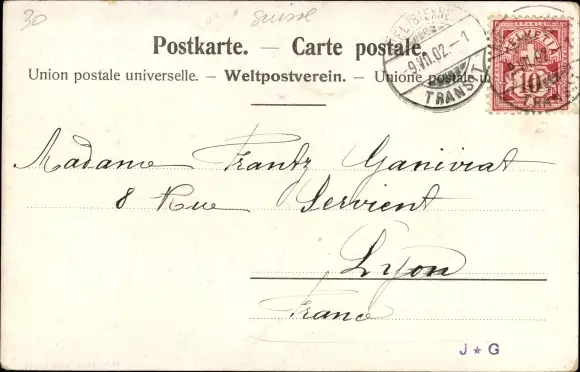 30
Suisse
Postkarte. — Carte postale.
Union postale universelle. — Weltpostverein. — Unione postale u
BIEL (BIENNE)
9.VII.02.–1
TRANSIT
FRANCO
HELVETIA
10
Madame Frantz Ganivrat
8 Rue Servient
Lyon
France
J ★ G